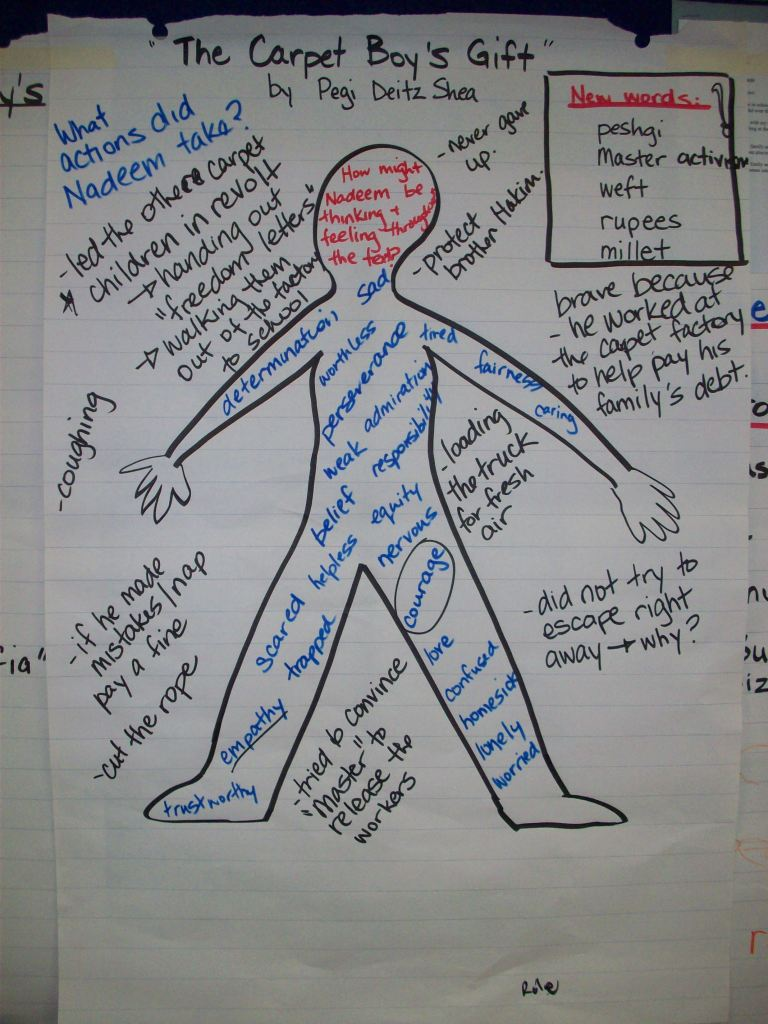 "The Carpet Boy's Gift"
by Pegi Deitz Shea
y's
What
actions did
Nadeem take?
-led the other carpet
children in revolt
→ handing out
"freedom letters"
→ walking them
out of the factory
to school
How might
Nadeem be
thinking +
feeling throughout
the text?
-never gave
up.
-protect
brother Hakim.
New words:
peshgi
Master activism
weft
rupees
millet
brave because
- he worked at
the carpet factory
to help pay his
family's debt.
sad
determination
worthless
tired
perseverance
fairness
caring
weak
admiration
responsibility
belief
equity
helpless
nervous
scared
trapped
courage
love
confused
homesick
lonely
worried
empathy
trustworthy
-coughing
-loading
the truck
for fresh
air
-if he made
mistakes/nap
pay a fine
-cut the rope
-did not try to
escape right
away → why?
-tried to convince
"Master" to
release the
workers